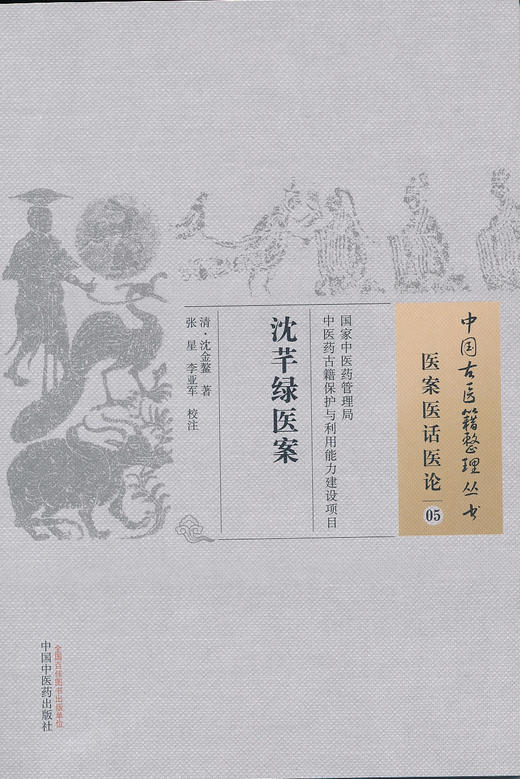 中国古医籍整理丛书
医案医话医论
05
国家中医药管理局
中医药古籍保护与利用能力建设项目
沈芊绿医案
清·沈金鳌 著
张星 李亚军 校注
全国百佳图书出版单位
中国中医药出版社